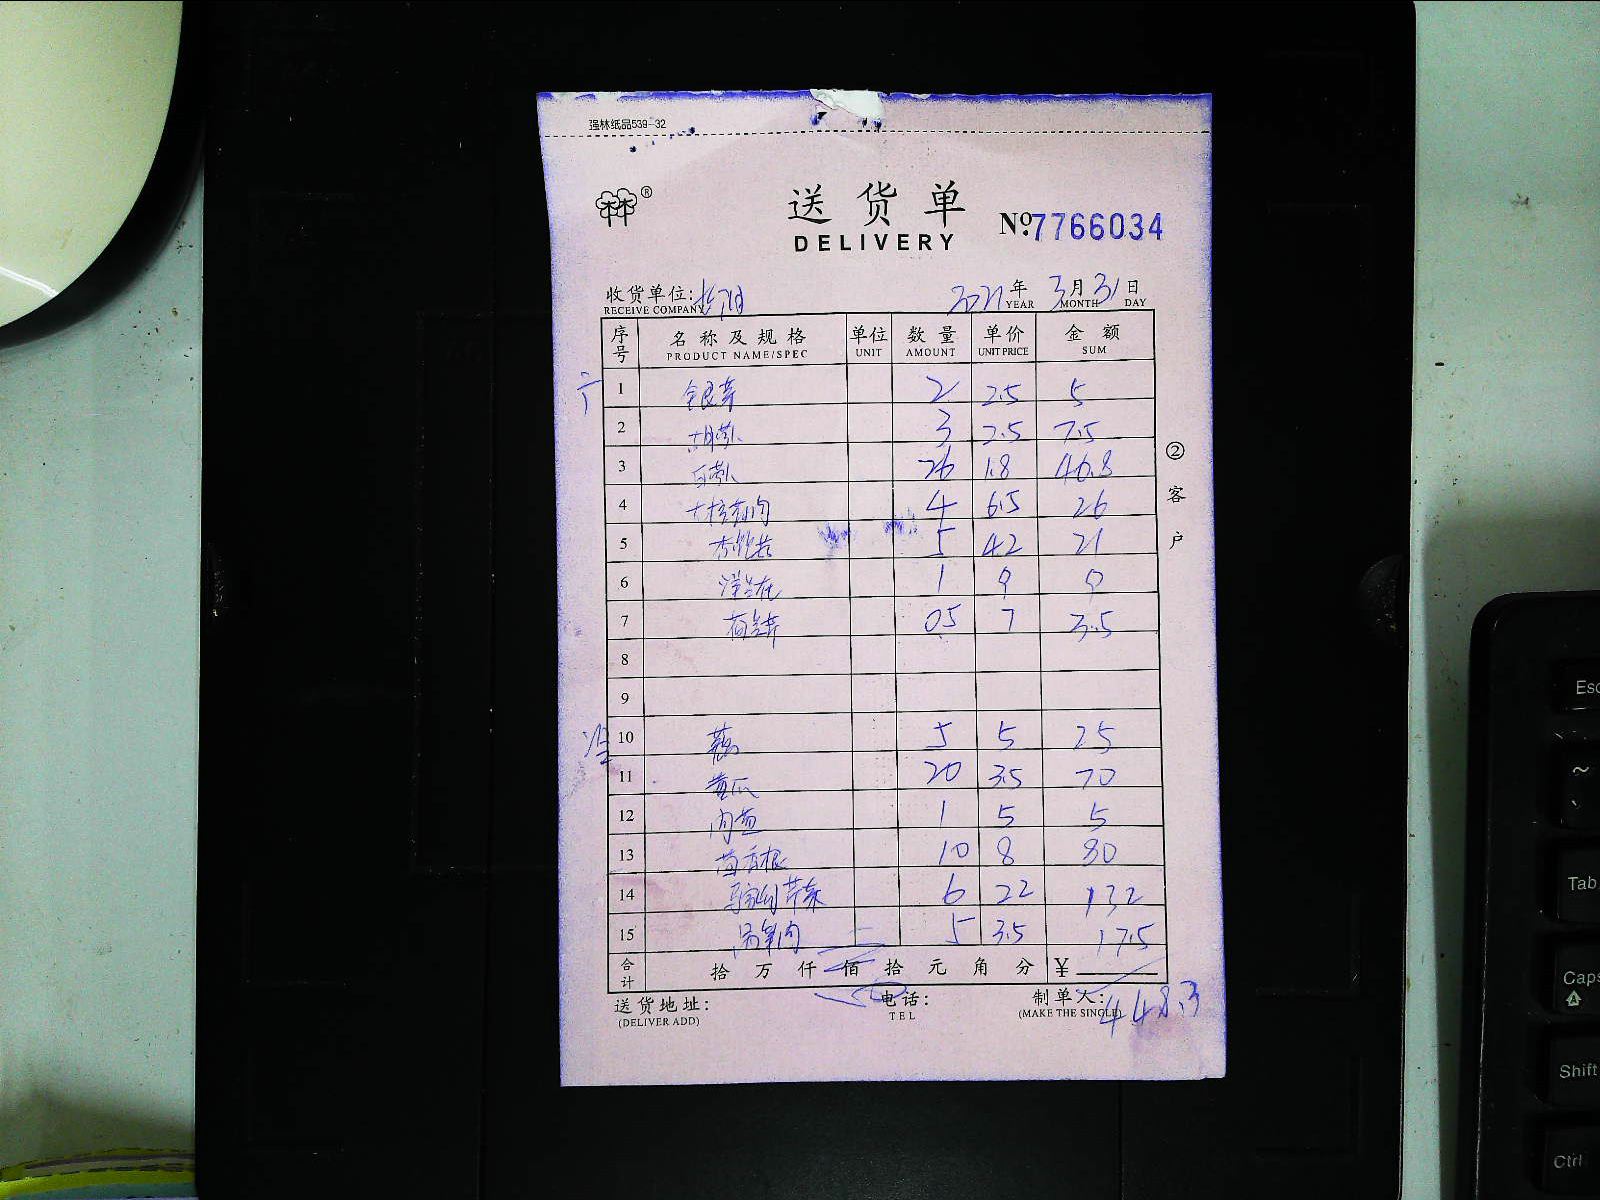 强林纸品539-32
®
送货单
DELIVERY
№7766034
收货单位: 2021年3月31日
RECEIVE COMPANY YEAR MONTH DAY
序号 名称及规格 单位 数量 单价 金额
PRODUCT NAME/SPEC UNIT AMOUNT UNIT PRICE SUM
1 银芽 2 2.5 5
2 胡萝卜 3 2.5 7.5
3 白萝卜 26 1.8 46.8
4 4 6.5 26
5 杏鲍菇 5 4.2 21
6 1 9 9
7 荷兰芹 05 7 3.5
8
9
10 藕 5 5 25
11 黄瓜 20 3.5 70
12 内茴 1 5 5
13 茴香根 10 8 80
14 马家沟芹菜 6 22 132
15 5 3.5 17.5
合计 拾万仟佰拾元角分 ¥
448.3
送货地址: 电话: 制单人:
(DELIVER ADD) TEL (MAKE THE SINGLE)
②客户
Esc
~
`
Tab
Caps
A
Shift
Ctrl